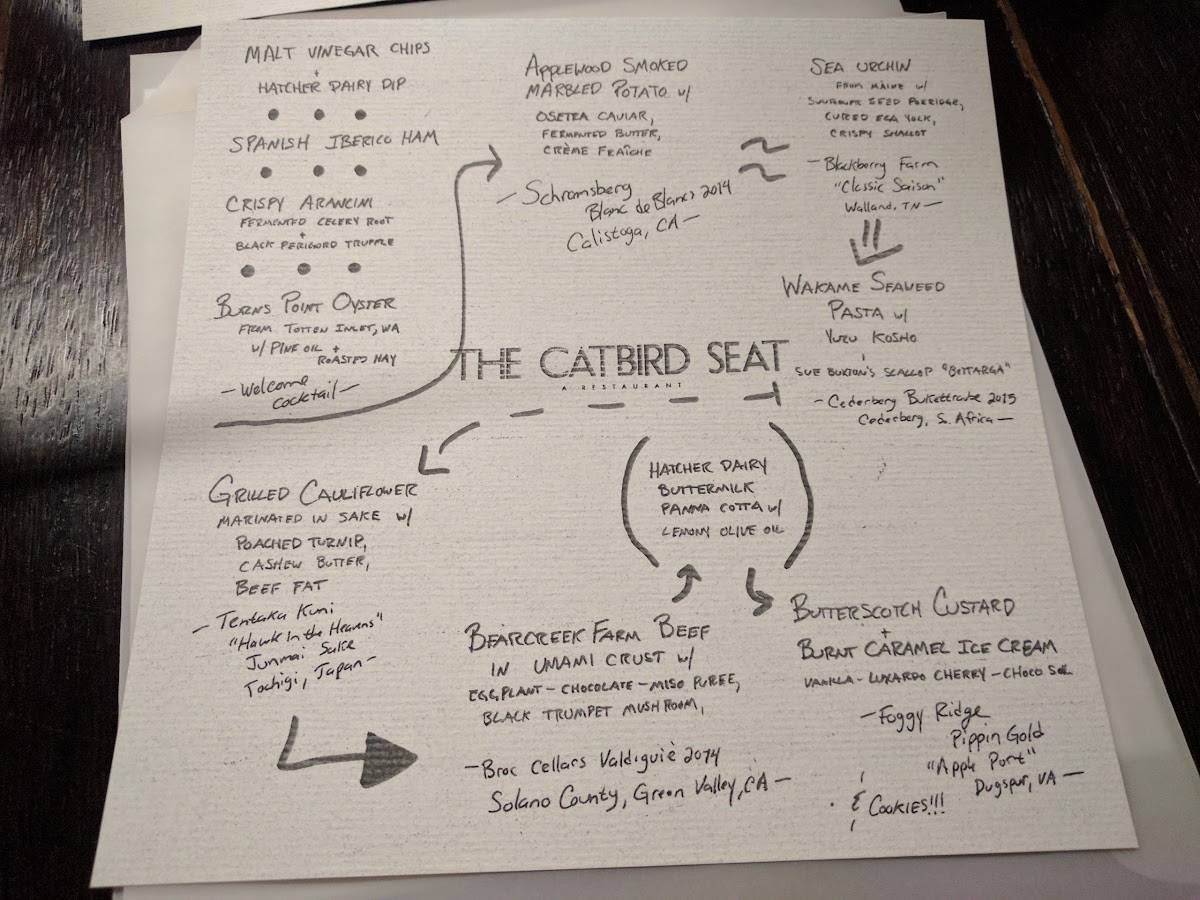 MALT VINEGAR CHIPS
+
HATCHER DAIRY DIP
SPANISH IBERICO HAM
CRISPY ARANCINI
FERMENTED CELERY ROOT
+
BLACK PERIGORD TRUFFLE
BURNS POINT OYSTER
FROM TOTTEN INLET, WA
W/ PINE OIL +
ROASTED HAY
- Welcome
cocktail -
APPLEWOOD SMOKED
MARBLED POTATO W/
OSETRA CAVIAR,
FERMENTED BUTTER,
CRÈME FRAÎCHE
- Schramsberg
Blanc de Blancs 2014
Calistoga, CA -
SEA URCHIN
FROM MAINE W/
SUNFLOWER SEED PORRIDGE,
CURED EGG YOLK,
CRISPY SHALLOT
- Blackberry Farm
"Classic Saison"
Walland, TN -
WAKAME SEAWEED
PASTA W/
YUZU KOSHO
+
SUE BUXTON'S SCALLOP "BOTTARGA"
- Cederberg Bukettraube 2015
Cederberg, So. Africa -
THE CATBIRD SEAT
A RESTAURANT
GRILLED CAULIFLOWER
MARINATED IN SAKE W/
POACHED TURNIP,
CASHEW BUTTER,
BEEF FAT
- Tentaka Kuni
"Hawk In the Heavens"
Junmai Sake
Tochigi, Japan -
BEARCREEK FARM BEEF
IN UMAMI CRUST W/
EGGPLANT - CHOCOLATE - MISO PUREE,
BLACK TRUMPET MUSHROOM,
- Broc Cellars Valdiguiè 2014
Solano County, Green Valley, CA -
HATCHER DAIRY
BUTTERMILK
PANNA COTTA W/
LEMONY OLIVE OIL
BUTTERSCOTCH CUSTARD
+
BURNT CARAMEL ICE CREAM
VANILLA - LUXARDO CHERRY - CHOCO SOIL
- Foggy Ridge
Pippin Gold
"Apple Port"
Dugspur, VA -
& COOKIES!!!